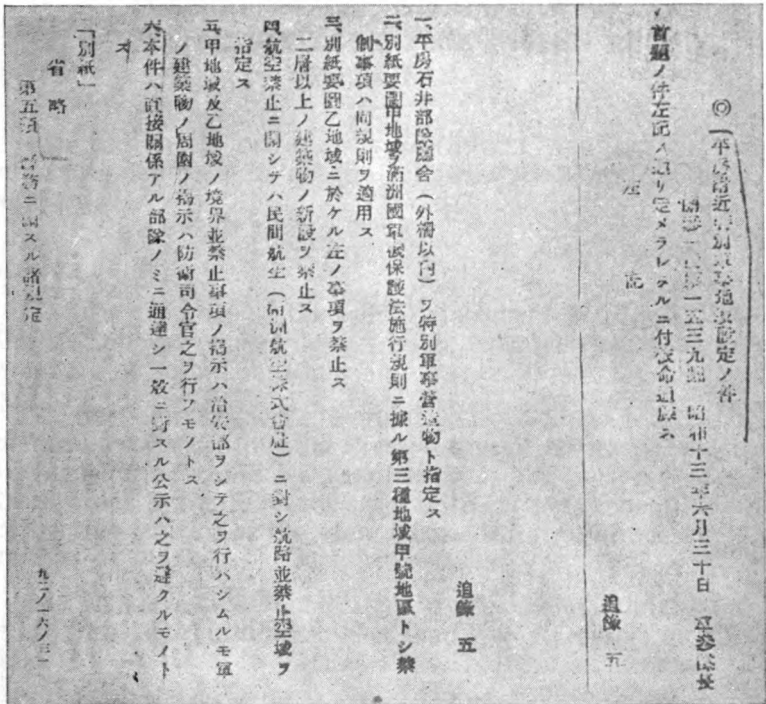 ◎「平房附近特別軍事地域設定ノ件
關參一發第一五三九號 昭和十三年六月三十日 軍參謀長
首題ノ件左記ノ通リ定メラレタルニ付依命通牒ス
左記
追錄 五
追錄 五
一、平房石井部隊廳舍(外柵以內)ヲ特別軍事營造物ト指定ス
二、別紙要圖甲地域ヲ滿洲國軍機保護法施行規則ニ據ル第三種地域甲號地區トシ禁
制事項ハ同規則ヲ適用ス
三、別紙要圖乙地域ニ於ケル左ノ事項ヲ禁止ス
二層以上ノ建築物ノ新設ヲ禁止ス
四、航空禁止ニ關シテハ民間航空(滿洲航空株式會社)ニ對シ航路並禁止空域ヲ
指定ス
五、甲地域及乙地域ノ境界並禁止事項ノ揭示ハ治安部ヲシテ之ヲ行ハシムルモ軍
ノ建築物ノ周圍ノ揭示ハ防衞司令官之ヲ行フモノトス
六、本件ハ直接關係アル部隊ノミニ通達シ一般ニ對スル公示ハ之ヲ避クルモノト
ス
「別紙」
省略」
第五項 務ニ關スル諸規定
九二ノ一六ノ三一